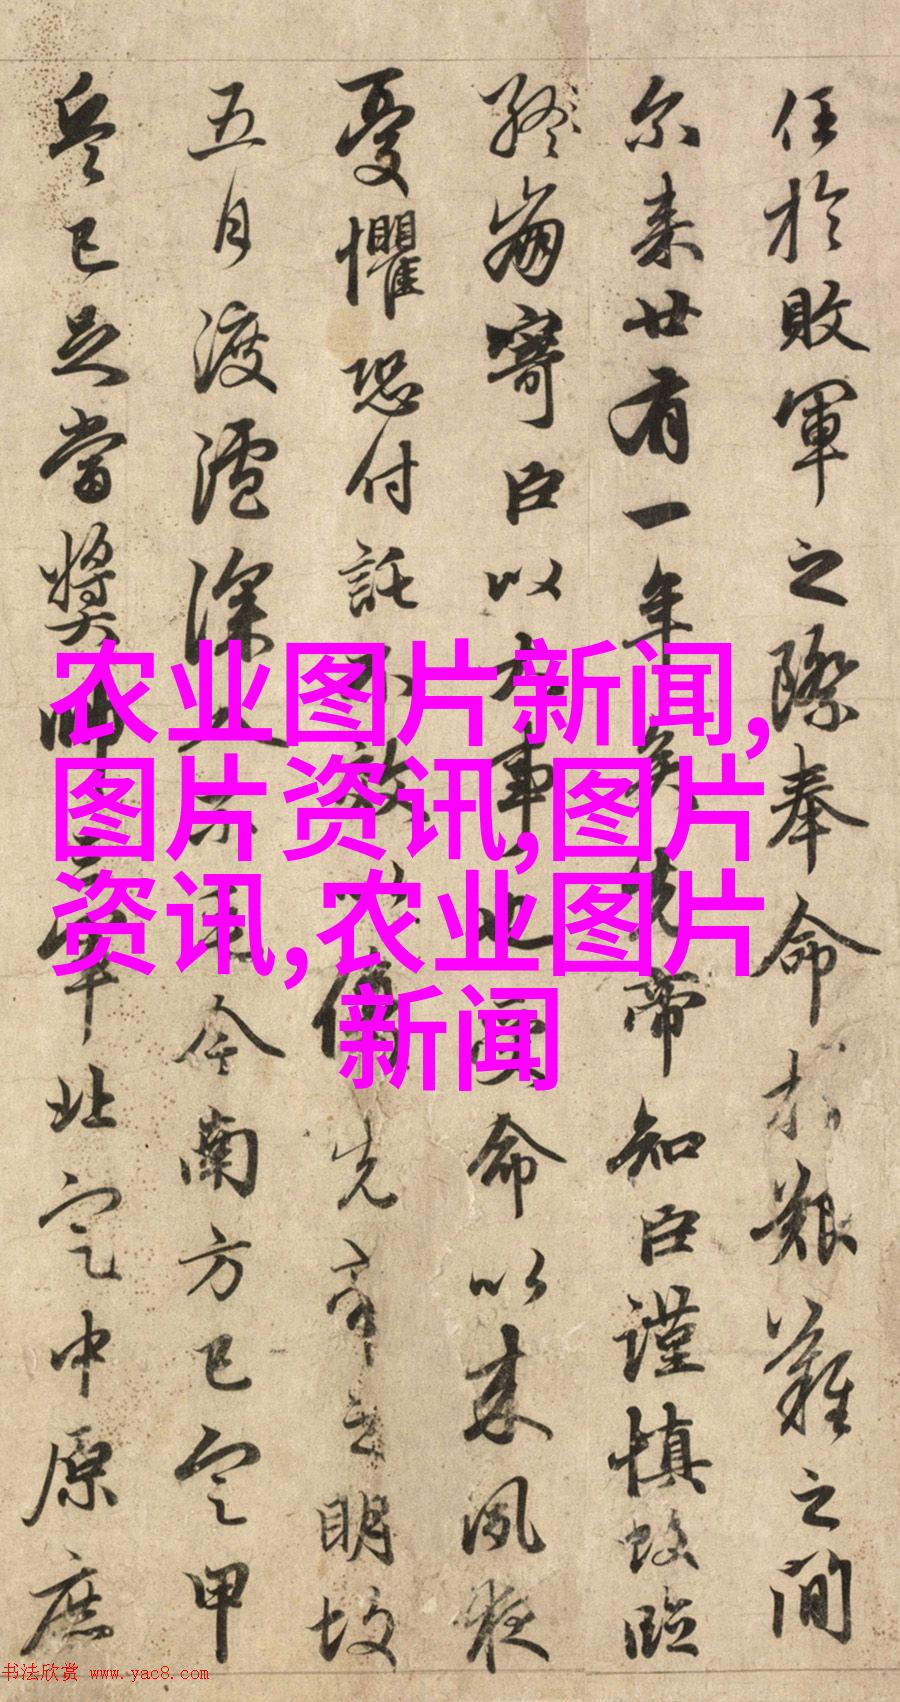 任於敗軍之際奉命於艱難之間
尔来廿有一年矣先帝知臣謹慎故臨
終崩寄臣以大事也受命以来夙夜
憂懼恐付託不效以傷先帝之明故
五月渡瀘深入不毛今南方已定甲
兵已足當獎帥三軍北定中原庶
农业图片新闻,
图片资讯,图片
资讯,农业图片
新闻
书法欣赏 www.yac8.com